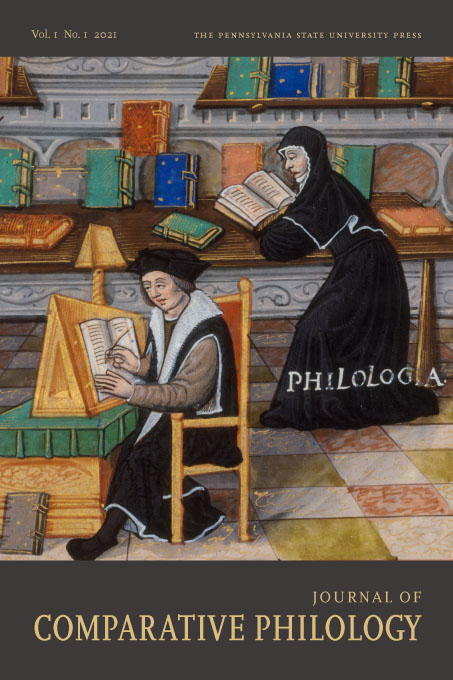 Vol. 1 No. 1 2021 THE PENNSYLVANIA STATE UNIVERSITY PRESS
PHILOLOGIA.
JOURNAL OF
COMPARATIVE PHILOLOGY